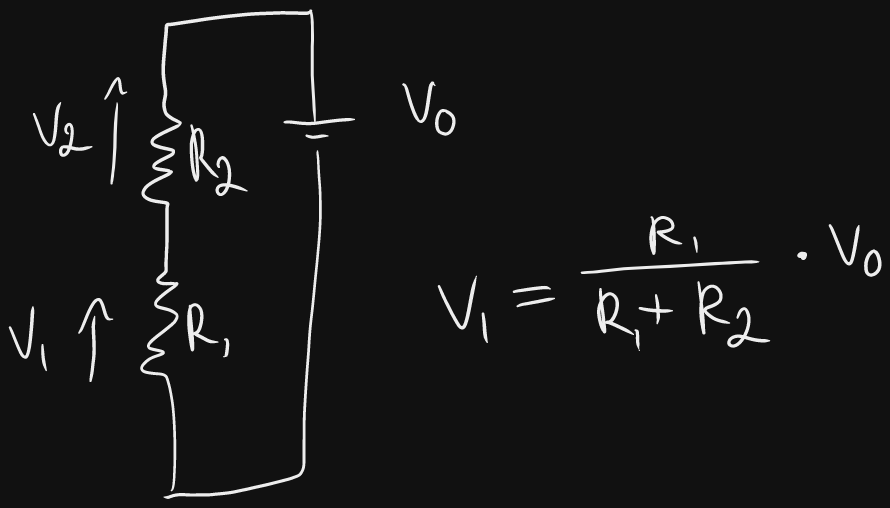 V₀
V₂ ↑ R₂
V₁ ↑ R₁
V₁ = R₁ / (R₁ + R₂) · V₀